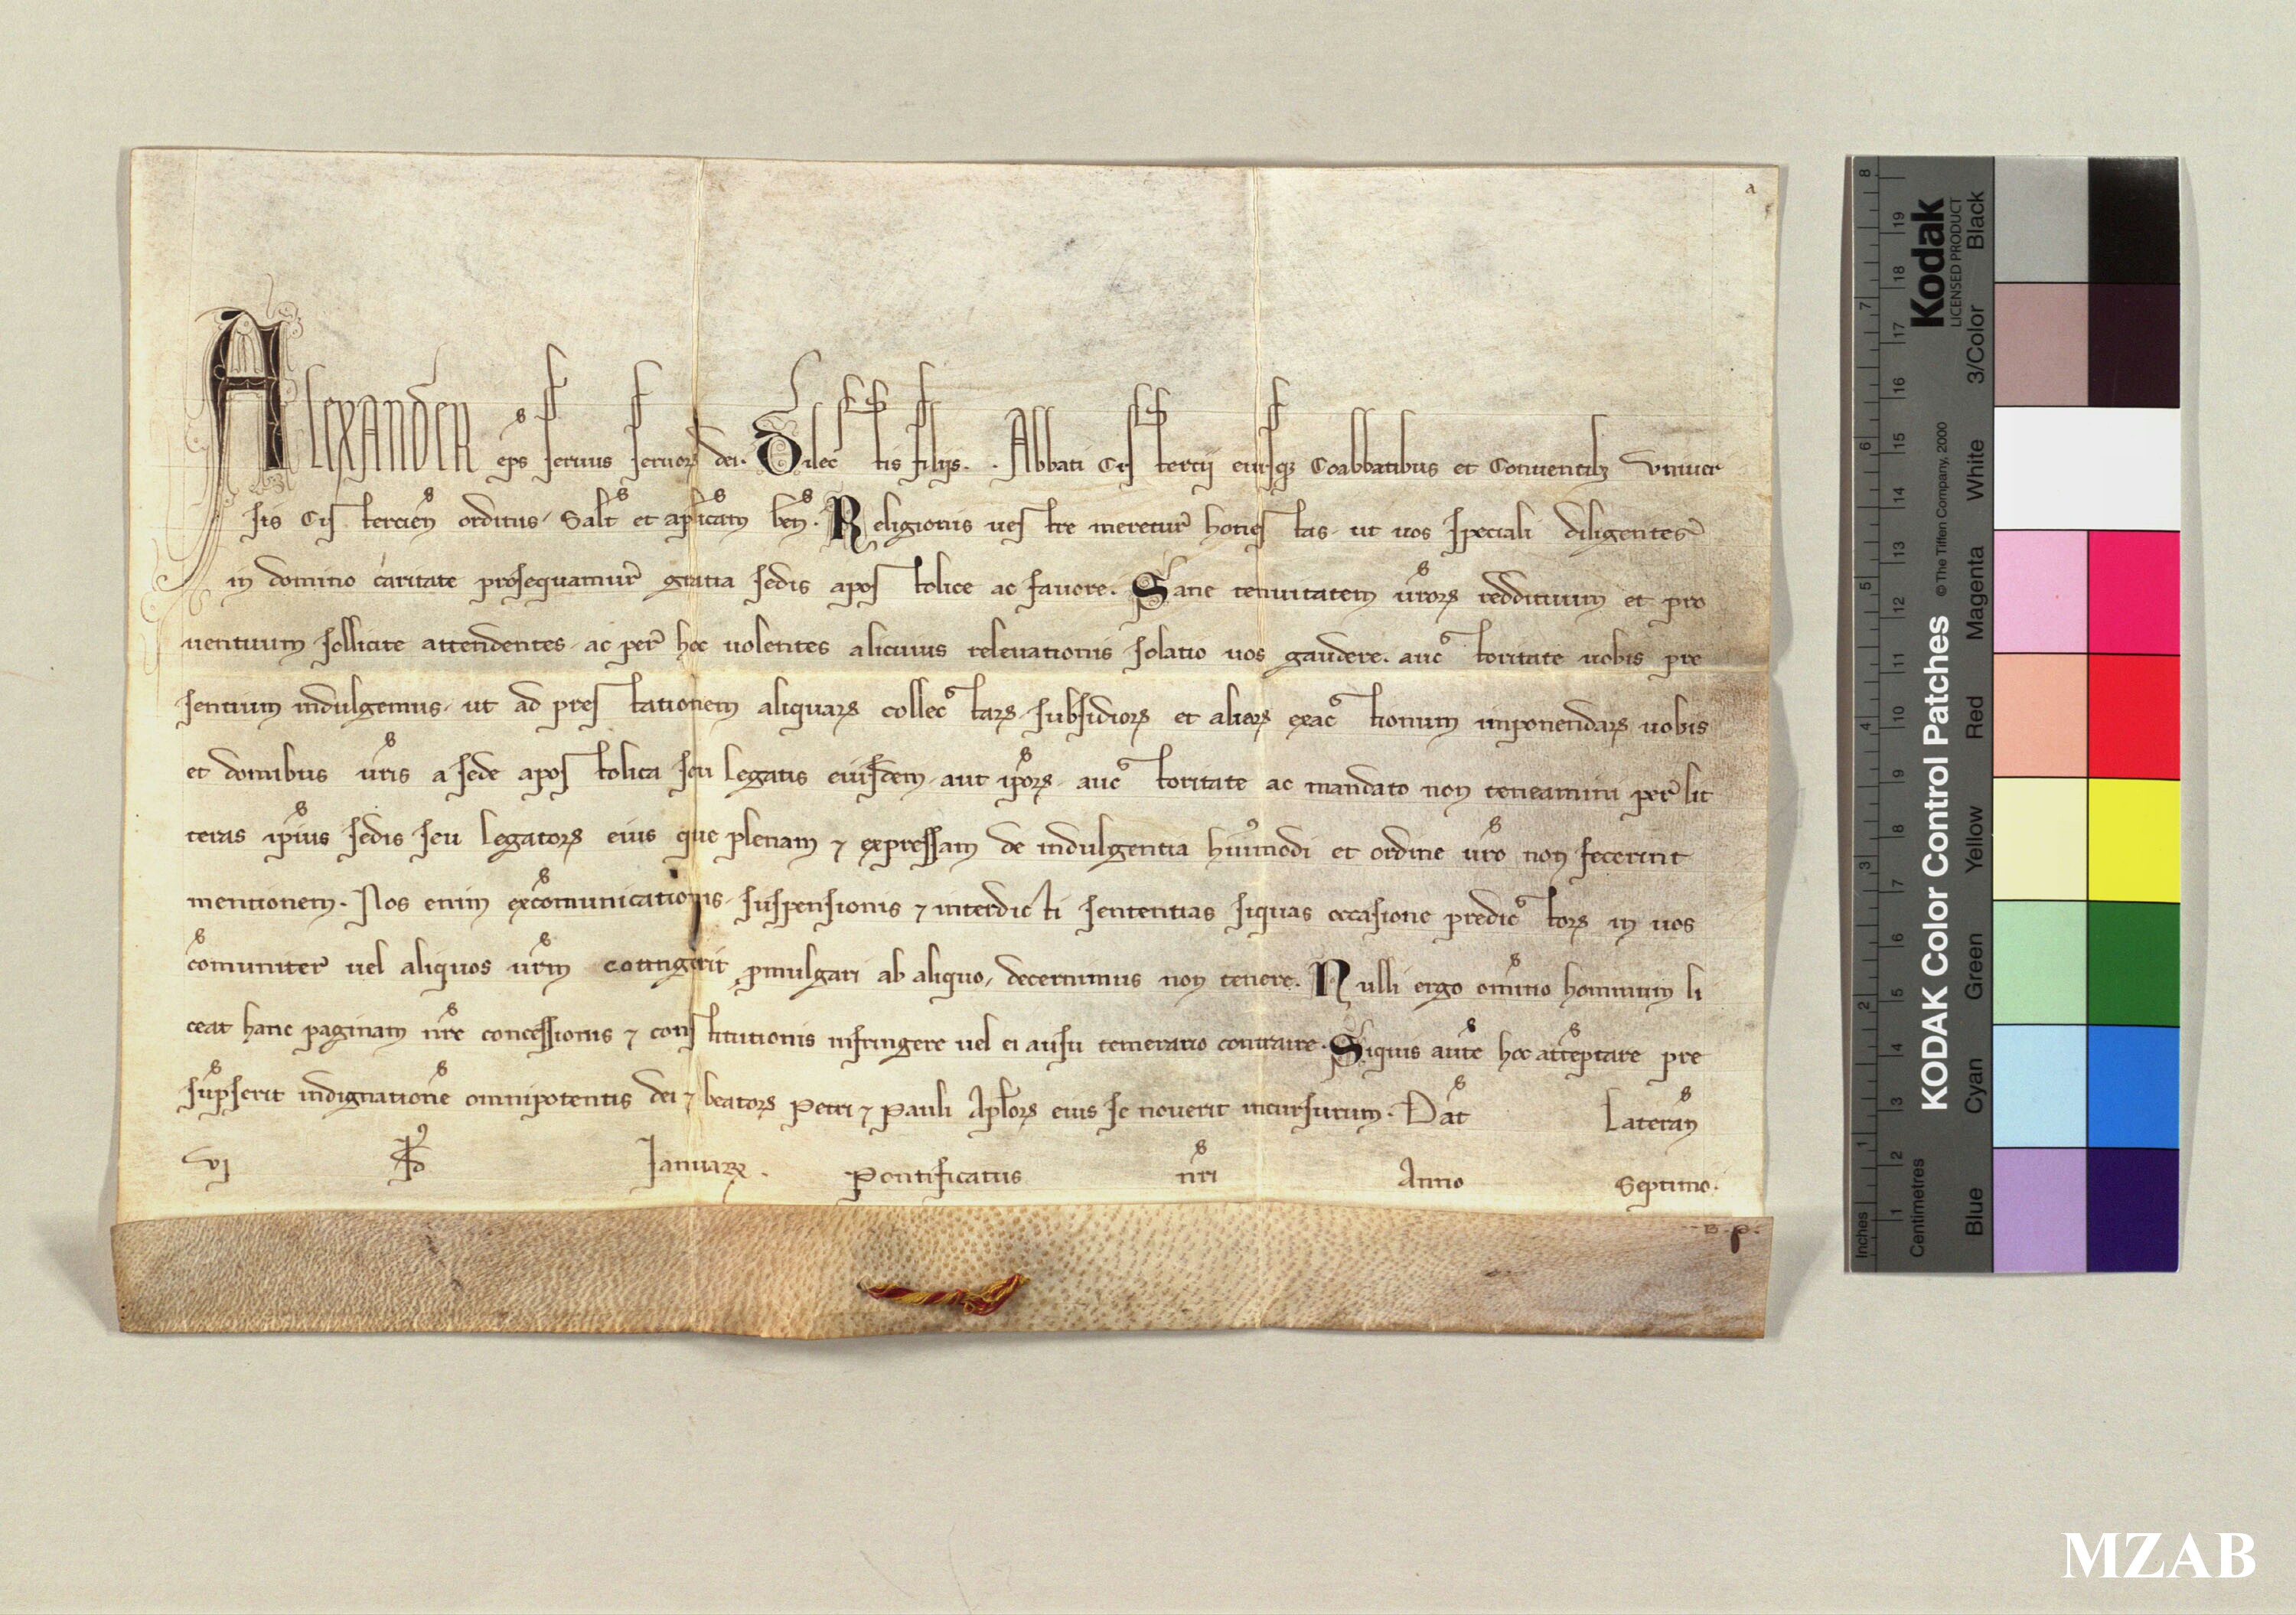 a
ALEXANDER eps seruus seruor dei. Dilectis filijs . . Abbati Cistercij eiusq Coabbatibus et Conuentib vniuer
sis Cistercien ordinis, Salt et aplicam ben. Religionis uestre meretur honestas, ut uos speciali diligentes
in domino caritate prosequamur gratia sedis apostolice ac fauore. Sane tenuitatem vror reddituum et pro
uentuum sollicite attendentes, ac per hoc uolentes alicuius releuationis solatio uos gaudere. auctoritate uobis pre
sentium indulgemus, ut ad prestationem aliquar collectar, subsidior et alior exactionum imponendar uobis
et domibus vris a sede apostolica seu legatis eiusdem, aut ipor, auctoritate ac mandato non teneamini per lit
teras ipius sedis seu legator eius que plenam ⁊ expressam de indulgentia huimodi et ordine vro non fecerint
mentionem. Nos enim excomunicationis, suspensionis ⁊ interdicti sententias siquas occasione predictor in uos
comuniter uel aliquos vrm contingerit pmulgari ab aliquo, decernimus non tenere. Nulli ergo omnio hominum li
ceat hanc paginam nre concessionis ⁊ constitutionis infringere uel ei ausu temerario contraire. Siquis aute hoc atteptare pre
supserit indignatione omnipotentis dei ⁊ beator Petri ⁊ Pauli Aplor eius se nouerit incursurum. Dat Lateran
vj kl Januar. Pontificatus nri Anno Septimo.
B. p.
KODAK Color Control Patches © The Tiffen Company, 2000
Kodak
LICENSED PRODUCT
Inches 1 2 3 4 5 6 7 8
Centimetres 1 2 7 6 8 9 10 11 12 13 14 15 16 17 18 19
Blue Cyan Green Yellow Red Magenta White 3/Color Black
MZAB